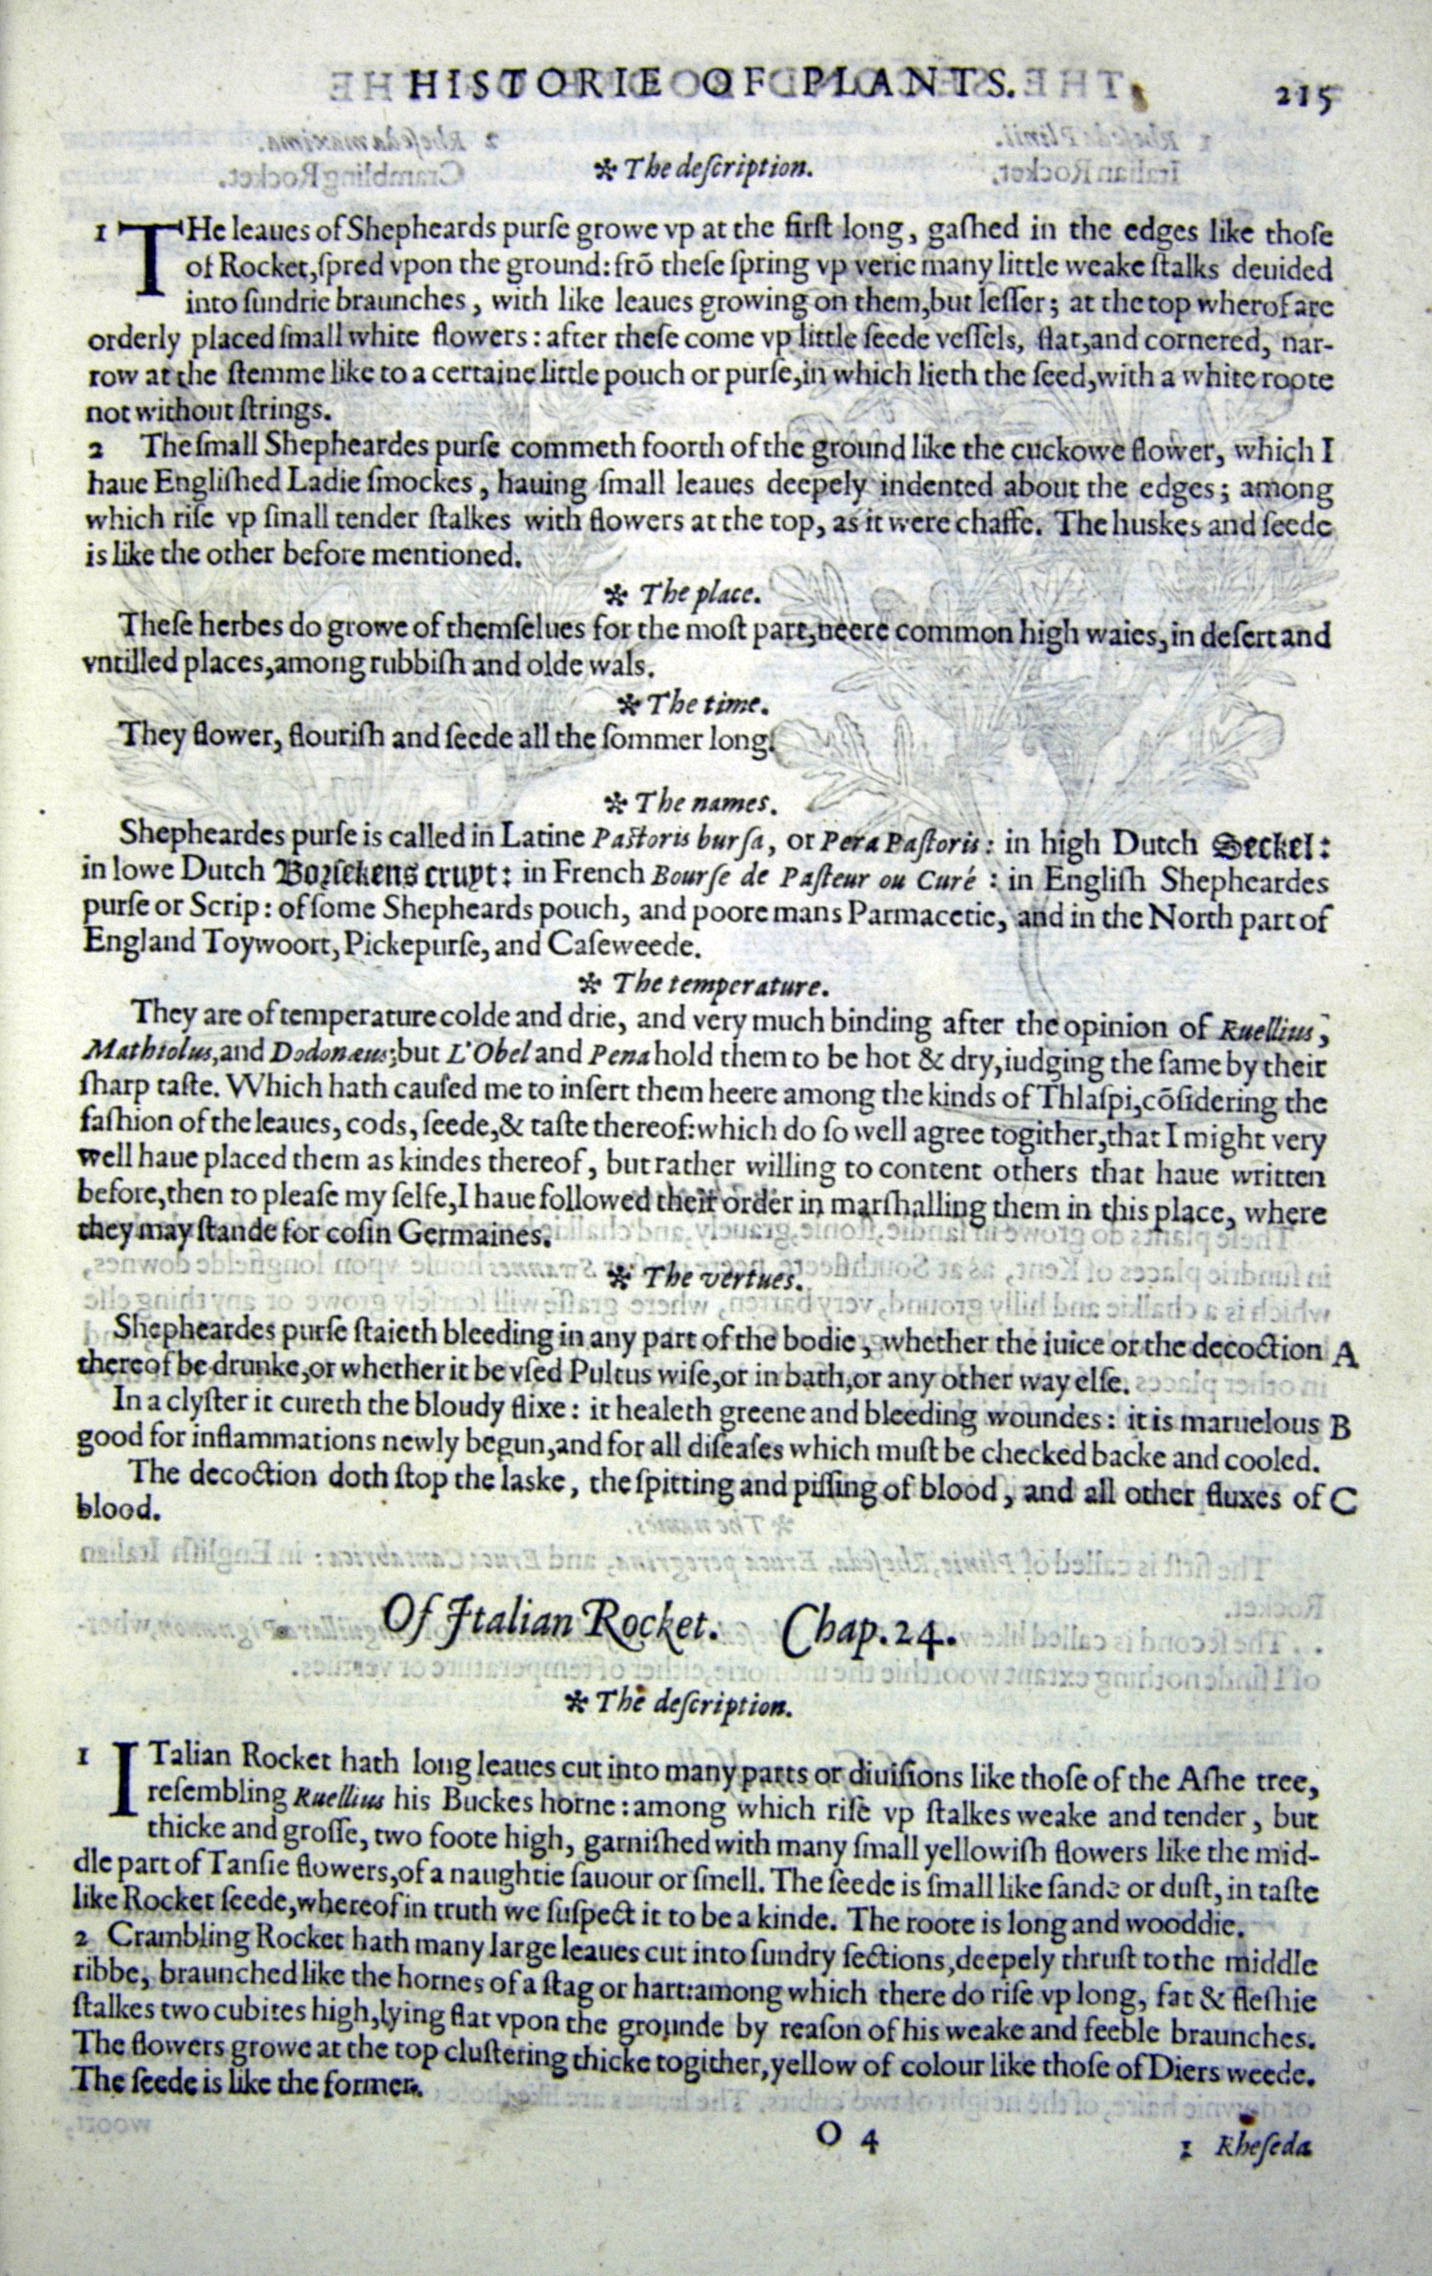 HISTORIE OF PLANTS. 215
✻ The deſcription.
1 THe leaues of Shepheards purſe growe vp at the firſt long, gaſhed in the edges like thoſe
of Rocket, ſpred vpon the ground: frō theſe ſpring vp verie many little weake ſtalks deuided
into ſundrie braunches, with like leaues growing on them, but leſſer; at the top wherof are
orderly placed ſmall white flowers: after theſe come vp little ſeede veſſels, flat, and cornered, nar-
row at the ſtemme like to a certaine little pouch or purſe, in which lieth the ſeed, with a white roote
not without ſtrings.
2 The ſmall Shepheardes purſe commeth foorth of the ground like the cuckowe flower, which I
haue Engliſhed Ladie ſmockes, hauing ſmall leaues deepely indented about the edges; among
which riſe vp ſmall tender ſtalkes with flowers at the top, as it were chaffe. The huskes and ſeede
is like the other before mentioned.
✻ The place.
Theſe herbes do growe of themſelues for the moſt part, neere common high waies, in deſert and
vntilled places, among rubbiſh and olde wals.
✻ The time.
They flower, flouriſh and ſeede all the ſommer long.
✻ The names.
Shepheardes purſe is called in Latine Paſtoris burſa, or Pera Paſtoris: in high Dutch Seckel:
in lowe Dutch Borſekens cruyt: in French Bourſe de Paſteur ou Curé: in Engliſh Shepheardes
purſe or Scrip: of ſome Shepheards pouch, and poore mans Parmacetie, and in the North part of
England Toywoort, Pickepurſe, and Caſeweede.
✻ The temperature.
They are of temperature colde and drie, and very much binding after the opinion of Ruellius,
Mathiolus, and Dodonæus; but L'Obel and Pena hold them to be hot & dry, iudging the ſame by their
ſharp taſte. Which hath cauſed me to inſert them heere among the kinds of Thlaſpi, cōſidering the
faſhion of the leaues, cods, ſeede, & taſte thereof: which do ſo well agree togither, that I might very
well haue placed them as kindes thereof, but rather willing to content others that haue written
before, then to pleaſe my ſelfe, I haue followed their order in marſhalling them in this place, where
they may ſtande for coſin Germaines.
✻ The vertues.
Shepheardes purſe ſtaieth bleeding in any part of the bodie, whether the iuice or the decoction A
thereof be drunke, or whether it be vſed Pultus wiſe, or in bath, or any other way elſe.
In a clyſter it cureth the bloudy flixe: it healeth greene and bleeding woundes: it is maruelous B
good for inflammations newly begun, and for all diſeaſes which muſt be checked backe and cooled.
The decoction doth ſtop the laske, the ſpitting and piſſing of blood, and all other fluxes of C
blood.
Of Italian Rocket. Chap. 24.
✻ The deſcription.
1 ITalian Rocket hath long leaues cut into many parts or diuiſions like thoſe of the Aſhe tree,
reſembling Ruellius his Buckes horne: among which riſe vp ſtalkes weake and tender, but
thicke and groſſe, two foote high, garniſhed with many ſmall yellowiſh flowers like the mid-
dle part of Tanſie flowers, of a naughtie ſauour or ſmell. The ſeede is ſmall like ſande or duſt, in taſte
like Rocket ſeede, whereof in truth we ſuſpect it to be a kinde. The roote is long and wooddie.
2 Crambling Rocket hath many large leaues cut into ſundry ſections, deepely thruſt to the middle
ribbe, braunched like the hornes of a ſtag or hart: among which there do riſe vp long, fat & fleſhie
ſtalkes two cubites high, lying flat vpon the grounde by reaſon of his weake and feeble braunches.
The flowers growe at the top cluſtering thicke togither, yellow of colour like thoſe of Diers weede.
The ſeede is like the former.
O 4 1 Rheſeda